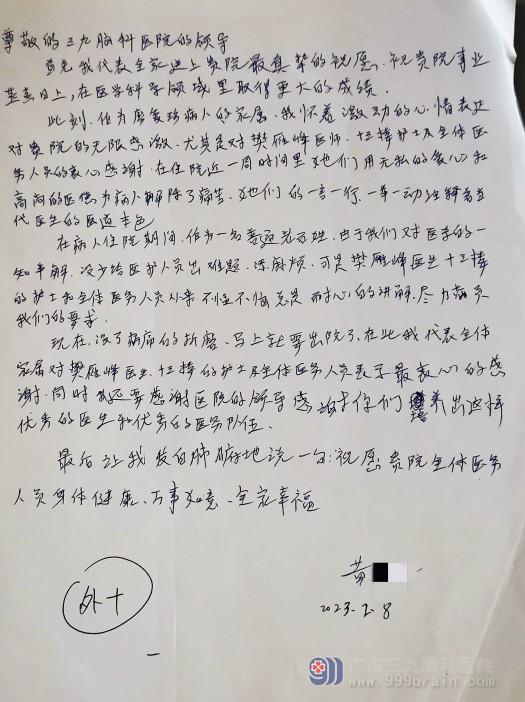 尊敬的三九脑科医院的领导
首先我代表全家送上贵院最真挚的祝愿、祝贵院事业
蒸蒸日上,在医学科学领域里取得更大的成绩.
此刻,作为廖爱珍病人的家属,我怀着激动的心情表达
对贵院的无限感激,尤其是对樊雁峰医师,十三楼护士及全体医
务人员的衷心感谢,在住院近一周时间里她们用无私的爱心和
高尚的医德为病人解除了痛苦,她们的一言一行,一举一动诠释着当
代医生的医道本色
在病人住院期间,作为一名普通老百姓,由于我们对医学的一
知半解,没少给医护人员出难题,添麻烦,可是樊雁峰医生十三楼
的护士和全体医务人员从来不怕不恼总是耐心的讲解,尽力满足
我们的要求.
现在,没了病痛的折磨、马上就要出院了,在此我代表全体
家属对樊雁峰医生,十三楼的护士及全体医务人员表示最衷心的感
谢,同时我还要感谢医院的领导感谢你们培养出这样
优秀的医生和优秀的医务队伍.
最后让我发自肺腑地说一句:祝愿贵院全体医务
人员身体健康、万事如意、全家幸福
外十
黄
2023.2.8
广东三九脑科医院
www.999brain.com